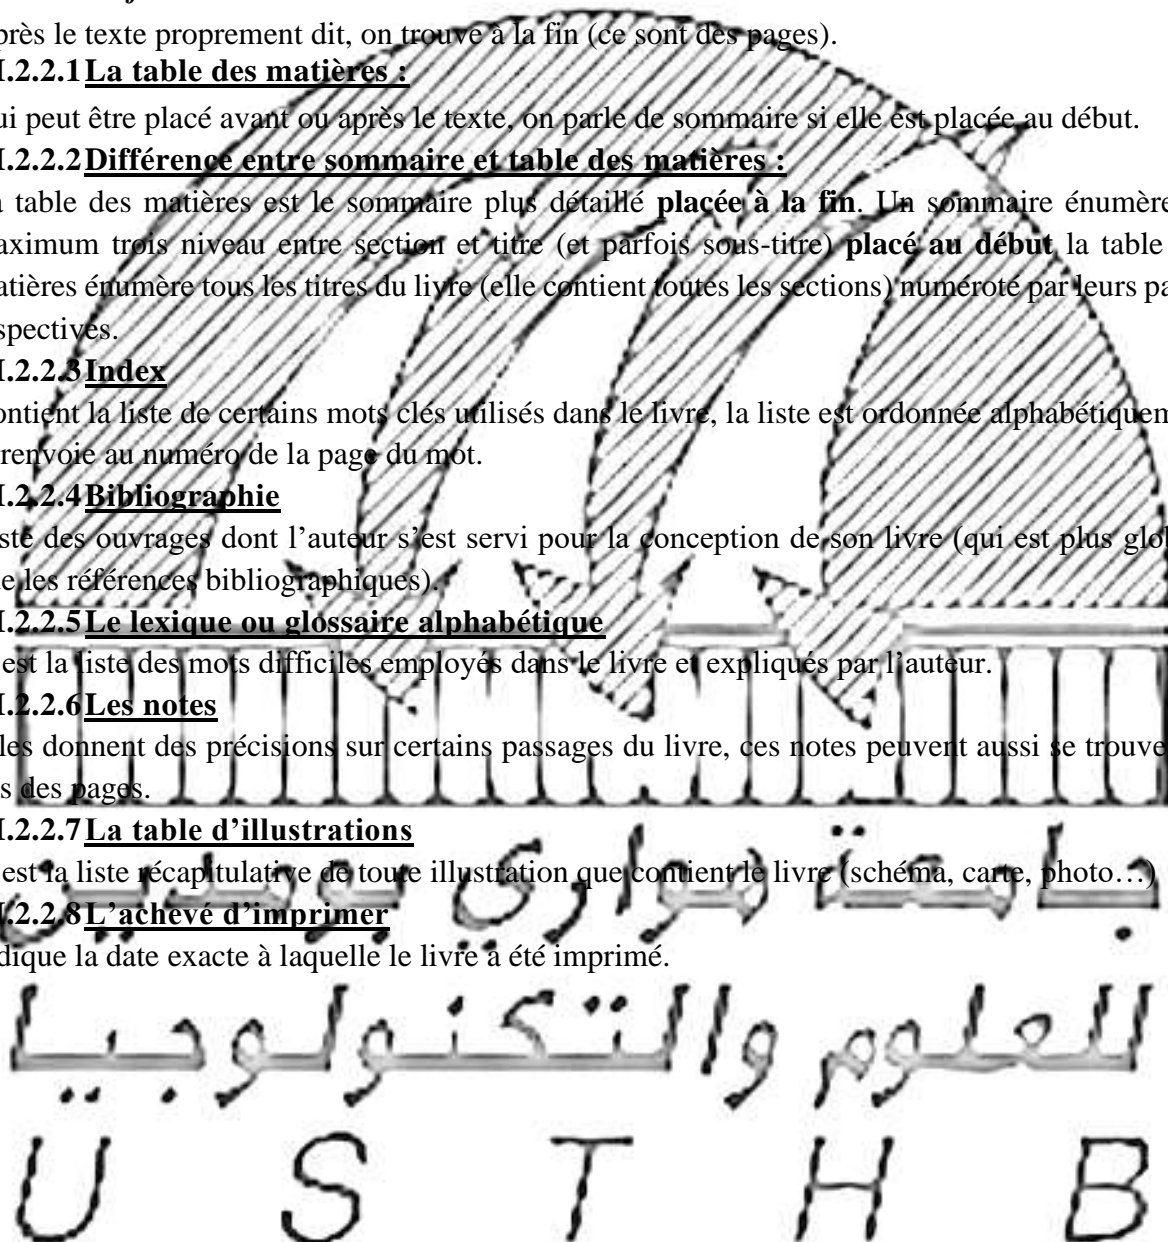 près le texte proprement dit, on trouve à la fin (ce sont des pages).
I.2.2.1 La table des matières :
ui peut être placé avant ou après le texte, on parle de sommaire si elle est placée au début.
I.2.2.2 Différence entre sommaire et table des matières :
a table des matières est le sommaire plus détaillé placée à la fin. Un sommaire énumère
aximum trois niveau entre section et titre (et parfois sous-titre) placé au début la table
atières énumère tous les titres du livre (elle contient toutes les sections) numéroté par leurs pa
spectives.
I.2.2.3 Index
ontient la liste de certains mots clés utilisés dans le livre, la liste est ordonnée alphabétiquem
renvoie au numéro de la page du mot.
I.2.2.4 Bibliographie
iste des ouvrages dont l’auteur s’est servi pour la conception de son livre (qui est plus glo
e les références bibliographiques).
I.2.2.5 Le lexique ou glossaire alphabétique
est la liste des mots difficiles employés dans le livre et expliqués par l’auteur.
I.2.2.6 Les notes
les donnent des précisions sur certains passages du livre, ces notes peuvent aussi se trouve
s des pages.
I.2.2.7 La table d’illustrations
est la liste récapitulative de toute illustration que contient le livre (schéma, carte, photo…)
I.2.2.8 L’achevé d’imprimer
dique la date exacte à laquelle le livre a été imprimé.
جامعة هواري بومدين
للعلوم والتكنولوجيا
U S T H B